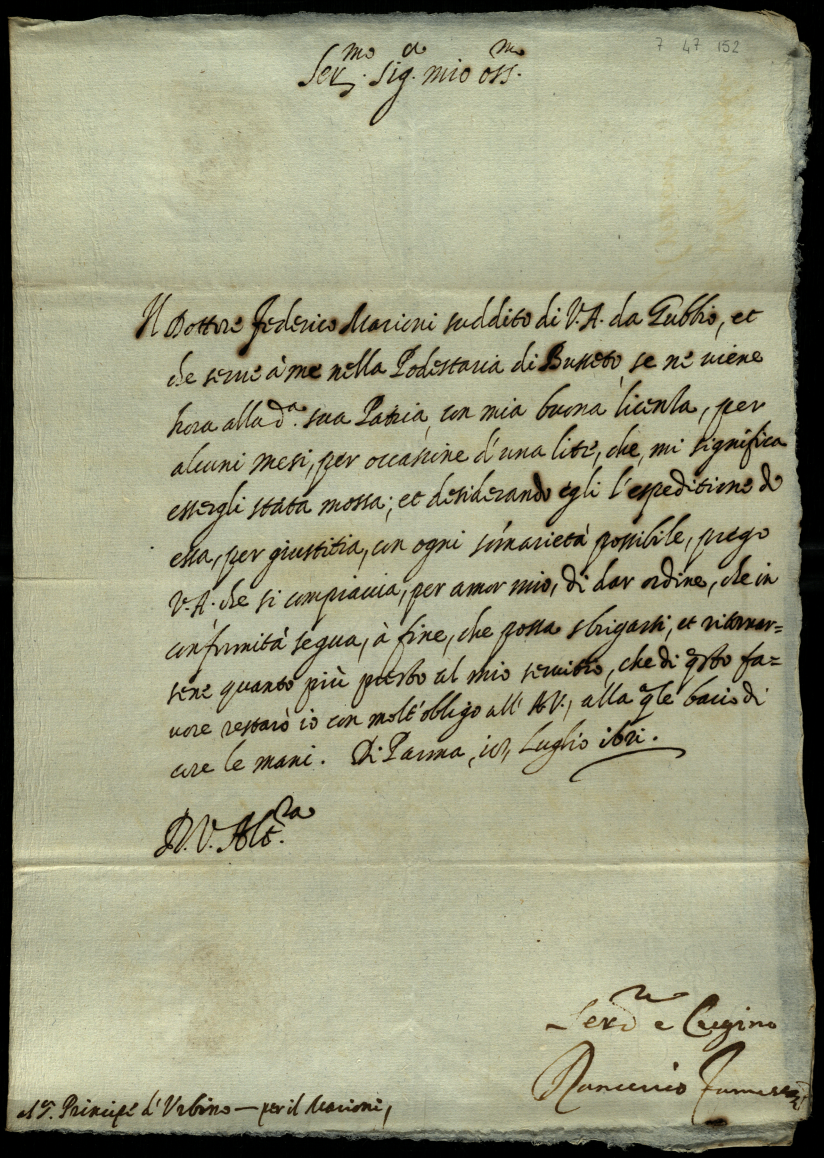 7 47 152
Ser.mo Sig.r mio oss.mo
Il Dottore Federico Marioni suddito di V.A. da Gubbio, et
che serve à me nella Podestaria di Busseto, se ne viene
hora alla d.a sua Patria, con mia buona licenza, per
alcuni mesi, per occasione d'una lite, che, mi significa
essergli stata mossa; et desiderando egli l'espeditione de
essa, per giustitia, con ogni som̃arietà possibile, prego
V.A. che si compiaccia, per amor mio, di dar ordine, che in
conformità segua, à fine, che possa sbrigarsi, et ritornar=
sene quanto più presto al mio servitio, che di q̃sto fa=
vore restarò io con molt'obligo all'A.V., alla q̃le bacio di
core le mani. Di Parma, Luglio
D.V. Alt.za
Ser.re e Cugino
Ranuccio Farnese
Al S.r Principe d'Urbino — per il Marioni,